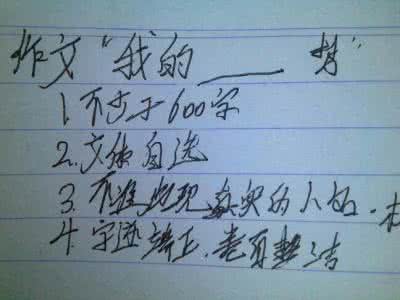 作文“我的____梦”
1.不少于600字
2.文体自选
3.不准出现真实的人名.校
4.字迹端正.卷面整洁